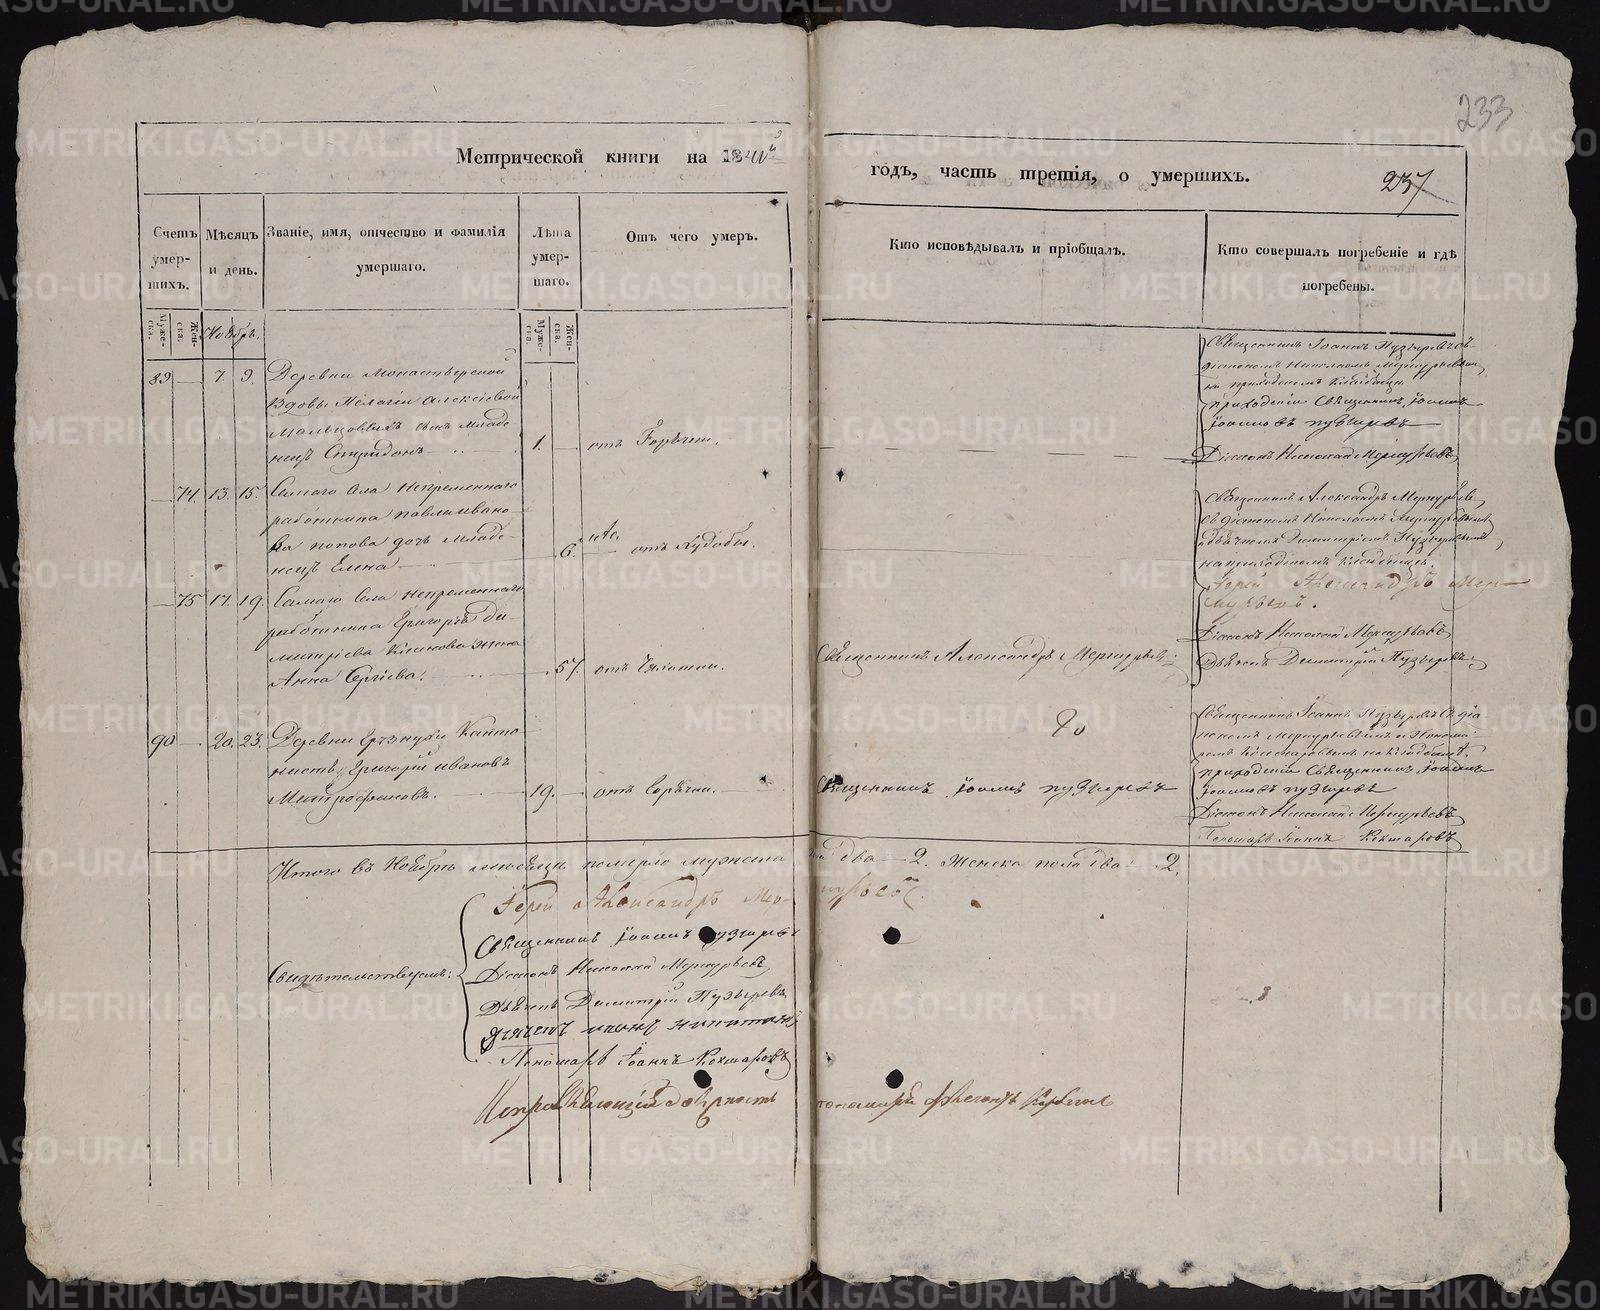 233
Метрической книги на 184
годъ, часть третія, о умершихъ.
237
Счетъ умер- шихъ.
Мѣсяцъ и день.
Званіе, имя, отчество и фамилія умершаго.
Лѣта умер- шаго.
Отъ чего умеръ.
Кто исповѣдывалъ и пріобщалъ.
Кто совершалъ погребеніе и гдѣ погребены.
Муже- ска.
Жен- ска.
Ноябрь.
Муже- ска.
Жен- ска.
89 7. 9. Деревни Монастырской
вдовы Пелагіи Алексіевой
Мальцовыхъ сынъ младе
нецъ Спиридонъ 1. отъ Горячки.
Священникъ Іоаннъ Пузыревъ съ
діакономъ Николаемъ Меркурьевым
на приходскомъ кладбищѣ
приходскій Священникъ Іоаннъ
Іоанновъ Пузыревъ
Діаконъ Николай Меркурьевъ
74. 13. 15. Самаго села непременнаго
работника Павла Ивано
ва Попова дочь младе-
нецъ Елена 6. отъ Худобы.
Священникъ Александръ Меркурьевъ
съ діакономъ Николаемъ Меркурьевымъ
и дьячкомъ Димитріемъ Пузыревымъ
на приходскомъ кладбищѣ.
Іерей Александръ Мер-
курьевъ.
Діаконъ Николай Меркурьевъ
Дьячекъ Димитрій Пузыревъ
75 17. 19. Самаго села непременнаго
работника Григорія Ди-
митріева жена
Анна Сергіева. 57. отъ Чахотки.
Священникъ Александръ Меркурьевъ
90 20. 23. Деревни Канто
нистъ Григорій Ивановъ
Митрофановъ. 19. отъ Горячки.
Священникъ Іоаннъ Пузыревъ
Священникъ Іоаннъ Пузыревъ съ діа
кономъ Меркурьевымъ и Понома
ремъ Кокшаровымъ на кладбищѣ
приходскій Священникъ Іоаннъ
Іоанновъ Пузыревъ
Діаконъ Николай Меркурьевъ
Пономарь Іоаннъ Кокшаровъ
Итого въ Ноябрѣ месяцѣ померло мужеска пола два 2. женска пола два 2.
Свидѣтельствуемъ:
Іерей Александръ Меркурьевъ.
Священникъ Іоаннъ Пузыревъ
Діаконъ Николай Меркурьевъ
Дьячекъ Димитрій Пузыревъ
Пономарь Іоаннъ Кокшаровъ
METRIKI.GASO-URAL.RU